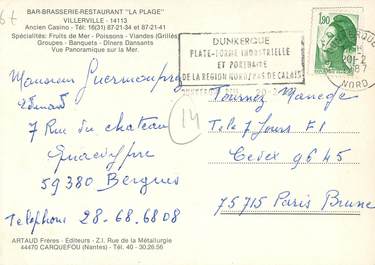 BAR-BRASSERIE-RESTAURANT "LA PLAGE"
VILLERVILLE - 14113
Ancien Casino - Tél: 16(31) 87-21-34 et 87-21-41
Spécialités: Fruits de Mer - Poissons - Viandes (Grillés)
Groupes - Banquets - Dîners Dansants
Vue Panoramique sur la Mer.
DUNKERQUE
PLATE-FORME INDUSTRIELLE
ET PORTUAIRE
DE LA REGION NORD/PAS DE CALAIS
1,90
NORD
Monsieur
Edouard
7 Rue du chateau
59380 Bergues
Telephone 28-68.6808
14
Tournez Manege
Tele 7 Jours F1
Cedex 9645
75715 Paris Brune
ARTAUD Frères - Editeurs - Z.I. Rue de la Métallurgie
44470 CARQUEFOU (Nantes) - Tél. 40 - 30.26.56